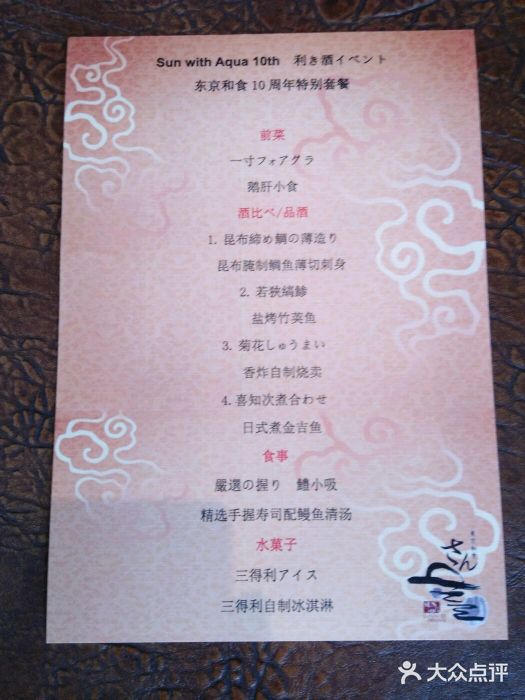 Sun with Aqua 10th 利き酒イベント
东京和食 10 周年特别套餐
前菜
一寸フォアグラ
鹅肝小食
酒比べ/品酒
1. 昆布締め鯛の薄造り
昆布腌制鲷鱼薄切刺身
2. 若狭縞鯵
盐烤竹荚鱼
3. 菊花しゅうまい
香炸自制烧卖
4.喜知次煮合わせ
日式煮金吉鱼
食事
嚴選の握り 鱧小吸
精选手握寿司配鳗鱼清汤
水菓子
三得利アイス
三得利自制冰淇淋
さん
大众点评